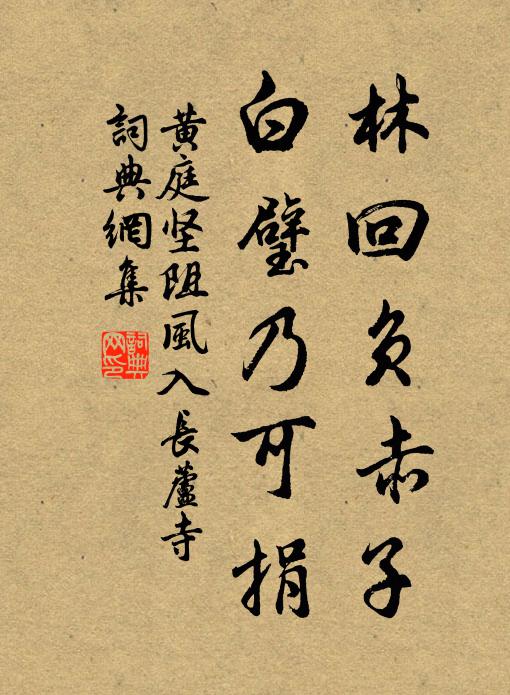 林回負赤子
白璧乃可捐
黄庭坚阻風入長蘆寺
詞典網集
詞典
网印